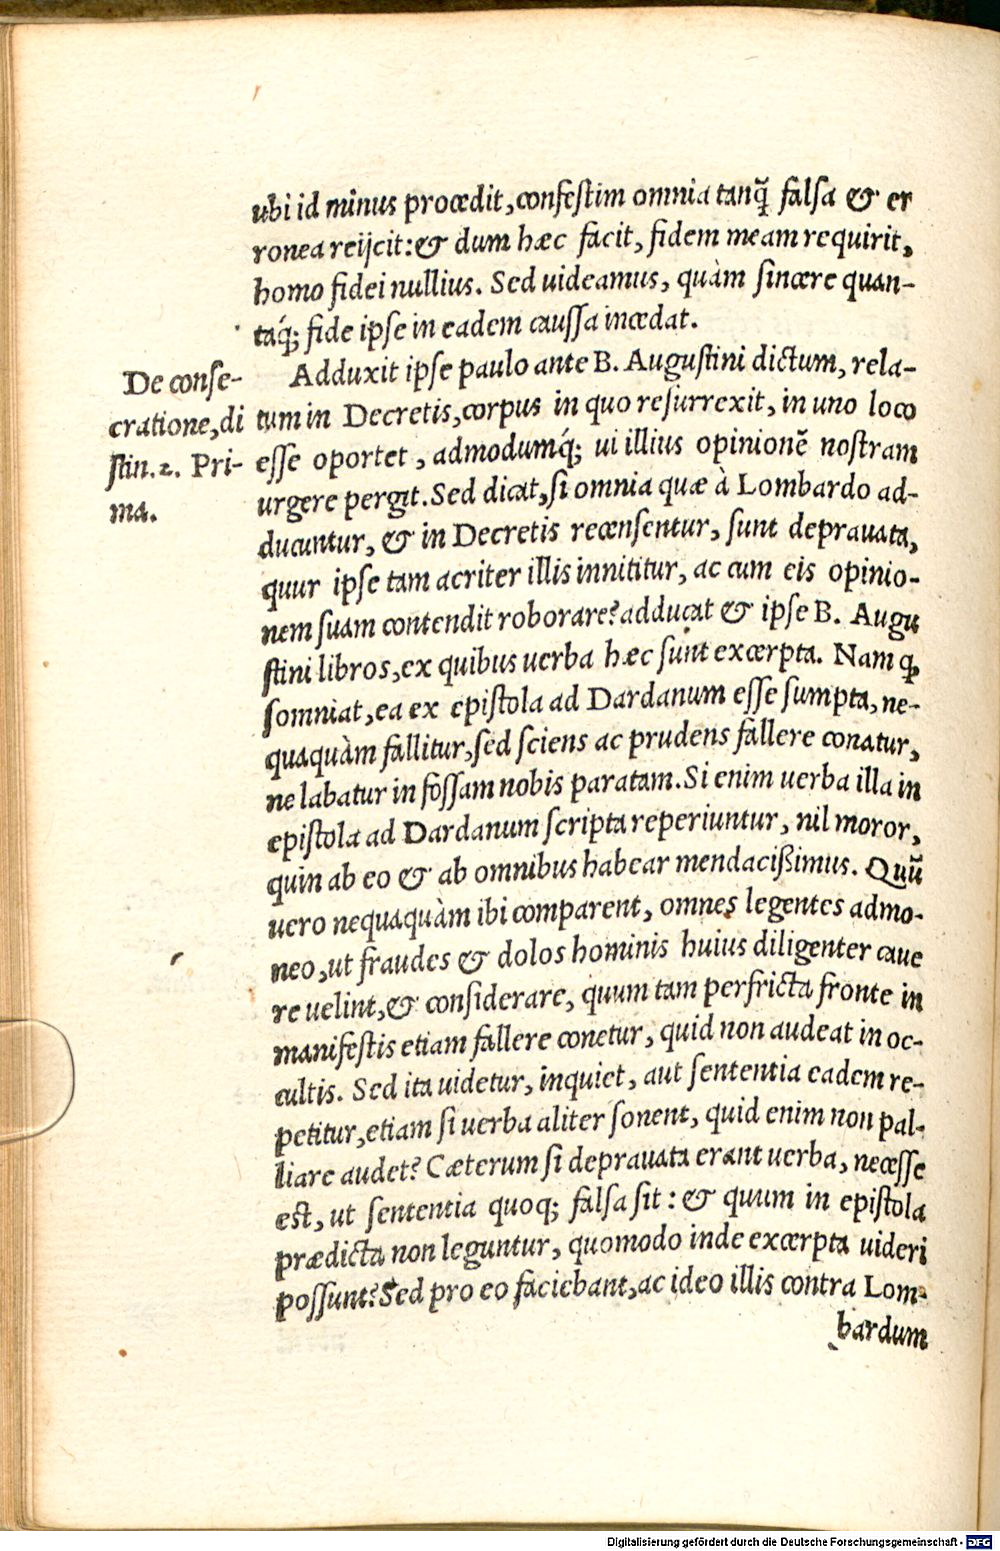 ubi id minus procedit, confestim omnia tanq̃ falsa & er
ronea reijcit: & dum hæc facit, fidem meam requirit,
homo fidei nullius. Sed uideamus, quàm sincere quan-
taq́; fide ipse in eadem caussa incedat.
Adduxit ipse paulo ante B. Augustini dictum, rela-
tum in Decretis, corpus in quo resurrexit, in uno loco
esse oportet, admodumq́; ui illius opinionẽ nostram
urgere pergit. Sed dicat, si omnia quæ à Lombardo ad-
ducuntur, & in Decretis recensentur, sunt deprauata,
quur ipse tam acriter illis innititur, ac cum eis opinio-
nem suam contendit roborare? adducat & ipse B. Augu
stini libros, ex quibus uerba hæc sunt excerpta. Nam ꝙ
somniat, ea ex epistola ad Dardanum esse sumpta, ne-
quaquàm fallitur, sed sciens ac prudens fallere conatur,
ne labatur in fossam nobis paratam. Si enim uerba illa in
epistola ad Dardanum scripta reperiuntur, nil moror,
quin ab eo & ab omnibus habear mendacißimus. Quũ
uero nequaquàm ibi compareant, omnes legentes admo-
neo, ut fraudes & dolos hominis huius diligenter caue
re uelint, & considerare, quum tam perfricta fronte in
manifestis etiam fallere conetur, quid non audeat in oc-
cultis. Sed ita uidetur, inquiet, aut sententia eadem re-
petitur, etiam si uerba aliter sonent, quid enim non pal-
liare audet? Cæterum si deprauata erant uerba, necesse
est, ut sententia quoq; falsa sit: & quum in epistola
prædicta non leguntur, quomodo inde excerpta uideri
possunt? Sed pro eo faciebant, ac ideo illis contra Lom-
bardum
De conse-
cratione, di
stin. 2. Pri-
ma.
Digitalisierung gefördert durch die Deutsche Forschungsgemeinschaft - DFG